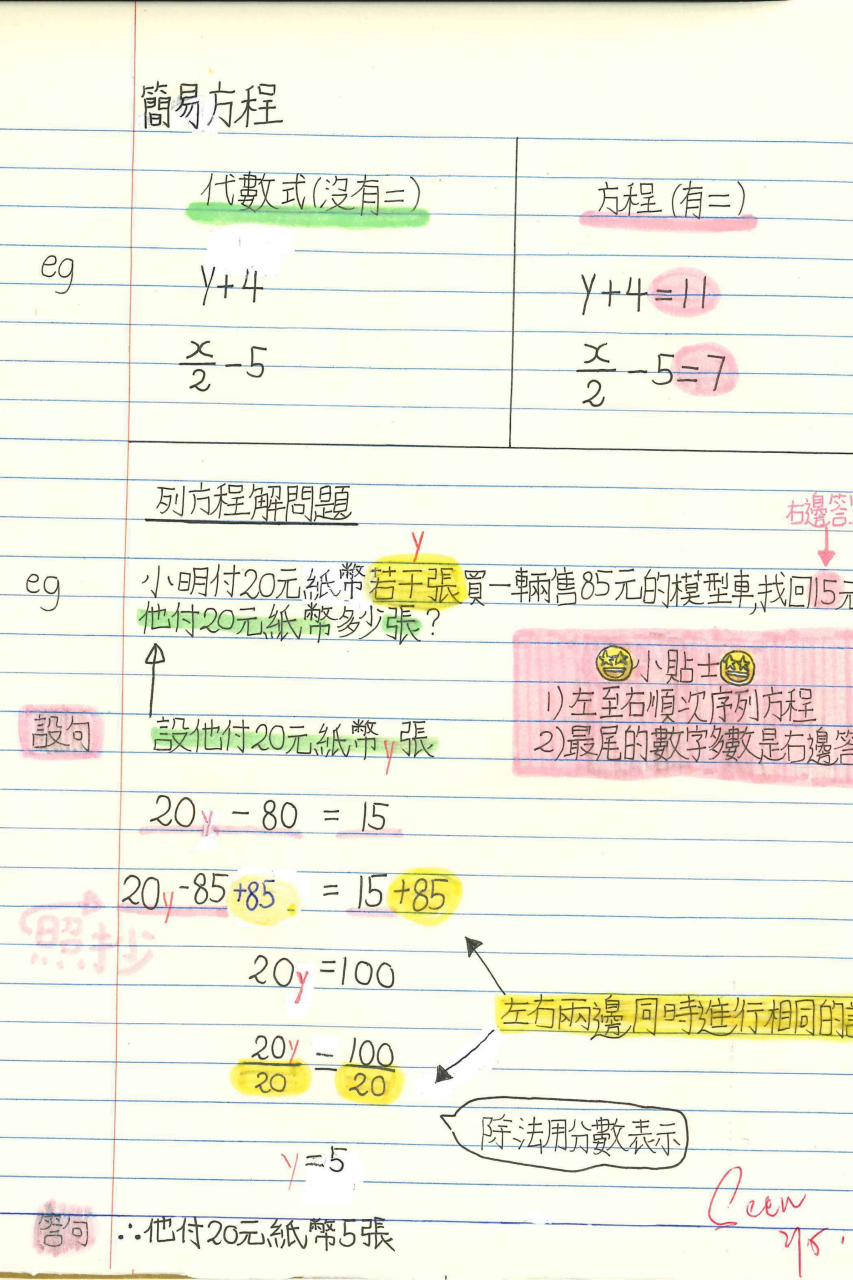 簡易方程
代數式(沒有=)
方程(有=)
eg
y+4
y+4=11
x/2-5
x/2-5=7
列方程解問題
右邊答
y
eg
小明付20元紙幣若干張買一輛售85元的模型車,找回15元
他付20元紙幣多少張?
小貼士
1)左至右順次序列方程
2)最尾的數字多數是右邊答
設句
設他付20元紙幣y張
20y-80=15
20y-85+85=15+85
照抄
20y=100
左右兩邊同時進行相同的
20y/20=100/20
除法用分數表示
y=5
Seen
答句
∴他付20元紙幣5張